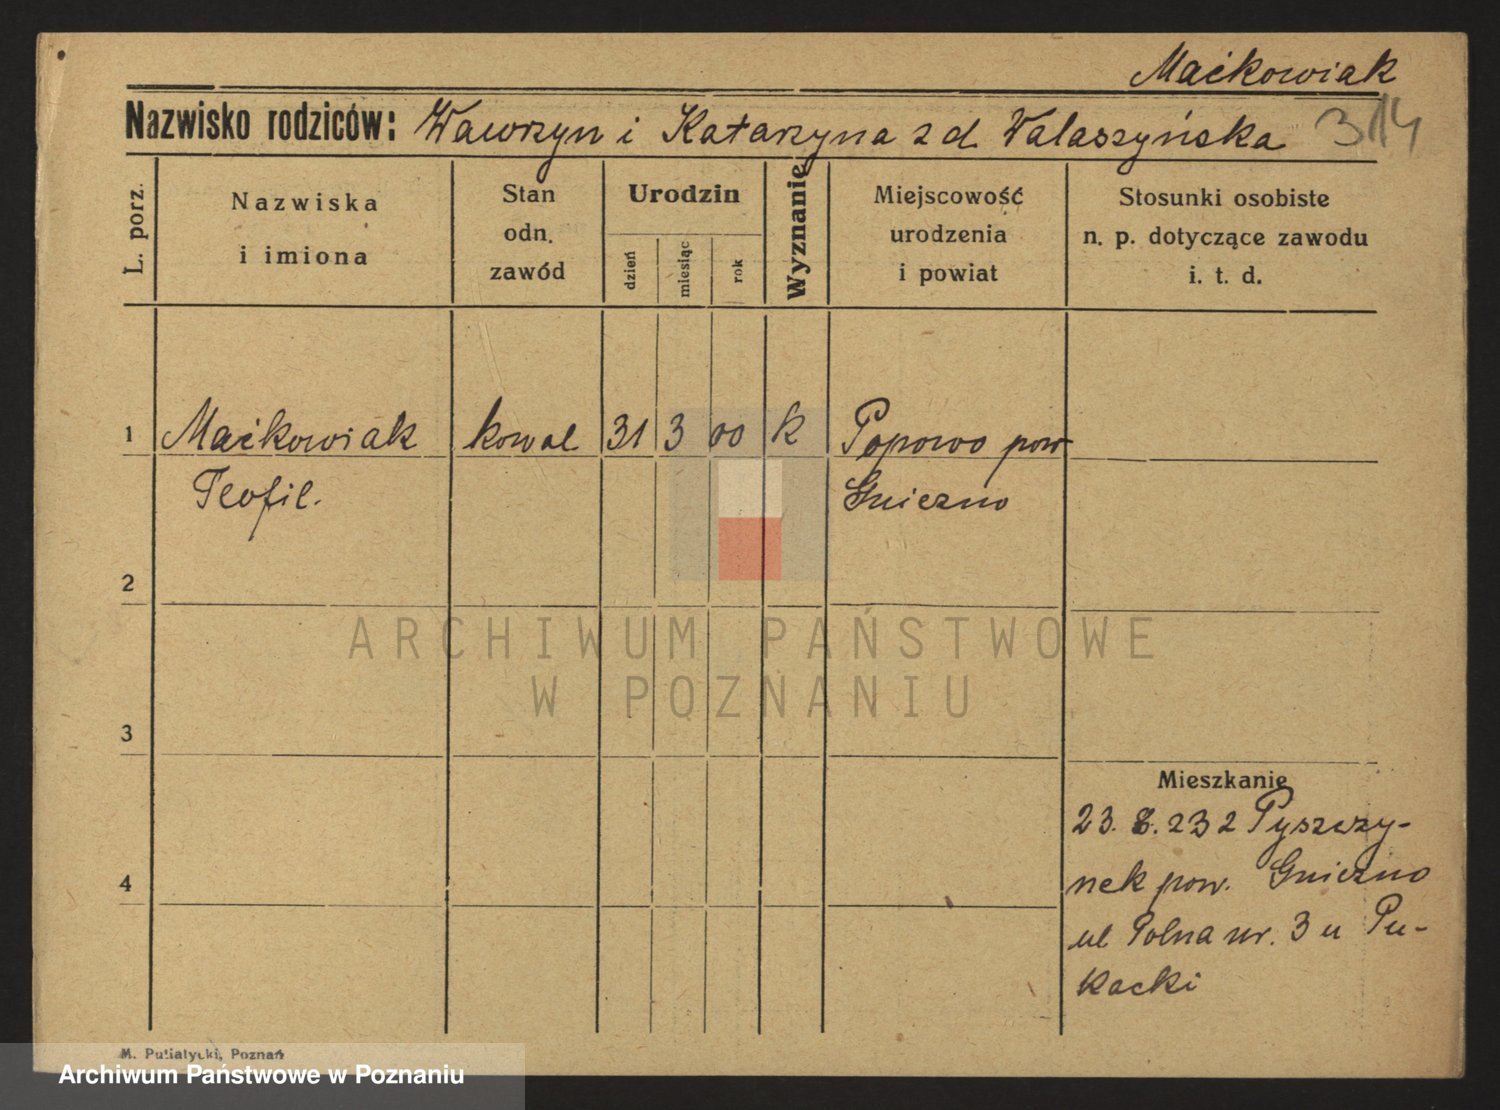 Maćkowiak
Nazwisko rodziców: Wawrzyn i Katarzyna z d. Walaszyńska 314
L. porz.
Nazwiska
i imiona
Stan
odn.
zawód
Urodzin
dzień
miesiąc
rok
Wyznanie
Miejscowość
urodzenia
i powiat
Stosunki osobiste
n. p. dotyczące zawodu
i. t. d.
1 Maćkowiak kowal 31 3 00 k Popowo pow
Teofil. Gniezno
2
ARCHIWUM PAŃSTWOWE
W POZNANIU
3
Mieszkanie
23. 8. 232 Pyszczy-
4 nek pow. Gniezno
ul Polna nr. 3 u Pu-
kacki
M. Putiatycki, Poznań
Archiwum Państwowe w Poznaniu